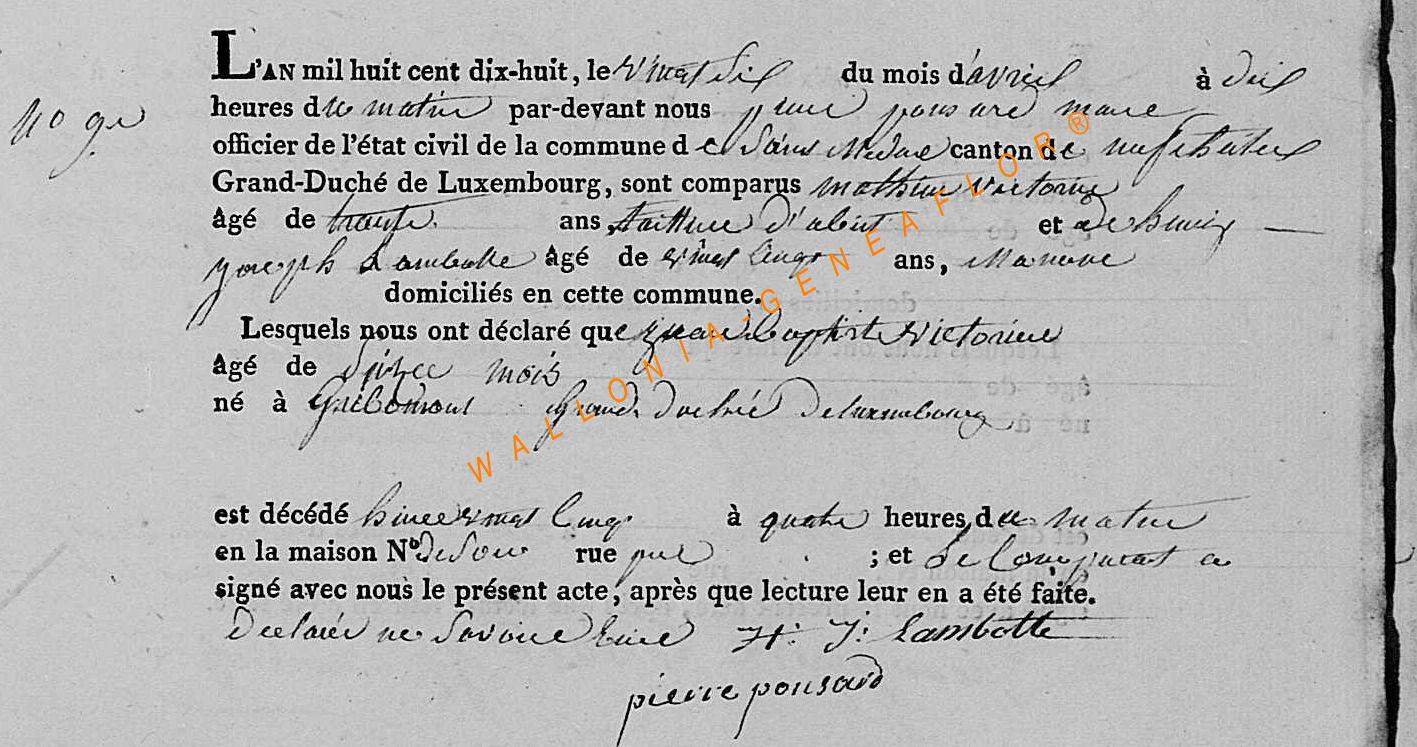 L'AN mil huit cent dix-huit, le vingt six du mois d'avril à dix
heures du matin par-devant nous pierre ponsard maire
officier de l'état civil de la commune de Saint Medard canton de neufchateau
Grand-Duché de Luxembourg, sont comparus mathieu victorin
âgé de trente ans, d'abit et de henri
joseph Lambotte âgé de vingt cinq ans, Manouvre
domiciliés en cette commune.
Lesquels nous ont déclaré que jean baptiste victorine
âgé de mois
né à Gribomont Grand duché de luxembourg
est décédé vingt cinq à quatre heures, du matin
en la maison N° rue ; et le Comparant a
signé avec nous le présent acte, après que lecture leur en a été faite.
Declaré ne Savoire H: J: Lambotte
pierre ponsard
WALLONIA-GENEAFLOR®